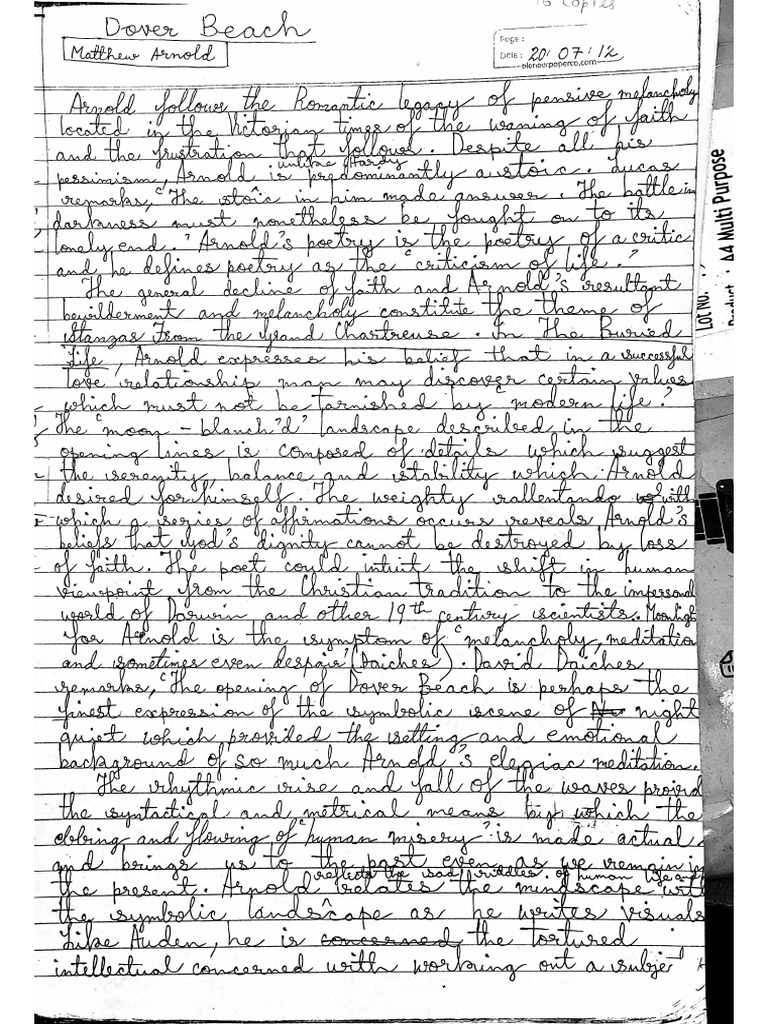 16 Copies
Dover Beach
Matthew Arnold
Page:
Date: 20 07 12
pioneerpaperco.com
Arnold follows the Romantic legacy of pensive melancholy
located in the Victorian times of the waning of faith
and the frustration that follows. Despite all his
unlike Hardy
pessimism, Arnold is predominantly a stoic. Lucas
remarks, 'The stoic in him made answer. The battle in
darkness must nonetheless be fought on to its
lonely end.' Arnold's poetry is the poetry of a critic
and he defines poetry as the 'criticism of life.'
The general decline of faith and Arnold's resultant
bewilderment and melancholy constitute the theme of
Stanzas From the Grand Chartreuse. In The Buried
Life, Arnold expresses his belief that in a successful
love relationship man may discover certain values
which must not be tarnished by 'modern life.'
The 'moon-blanch'd' landscape described in the
opening lines is composed of details which suggest
the serenity, balance and stability which Arnold
desired for himself. The weighty rallentando with
which a series of affirmations occurs reveals Arnold's
beliefs that God's dignity cannot be destroyed by loss
of faith. The poet could intuit the shift in human
viewpoint from the Christian tradition to the impersonal
world of Darwin and other 19th century scientists. Moonligh
for Arnold is the symptom of 'melancholy, meditation
and sometimes even despair' (Daiches). David Daiches
remarks, 'The opening of Dover Beach is perhaps the
finest expression of the symbolic scene of night
quiet which provided the setting and emotional
background of so much Arnold's elegiac meditation.
The rhythmic rise and fall of the waves provid
the syntactical and metrical means by which the
ebbing and flowing of 'human misery' is made actual
and brings us to the past even as we remain in
reflects the sad riddles of human life and
the present. Arnold relates the mindscape with
the symbolic landscape as he writes visuals
Like Auden, he is concerned the tortured
intellectual concerned with working out a subject
A4 Multi Purpose
LOT NO.